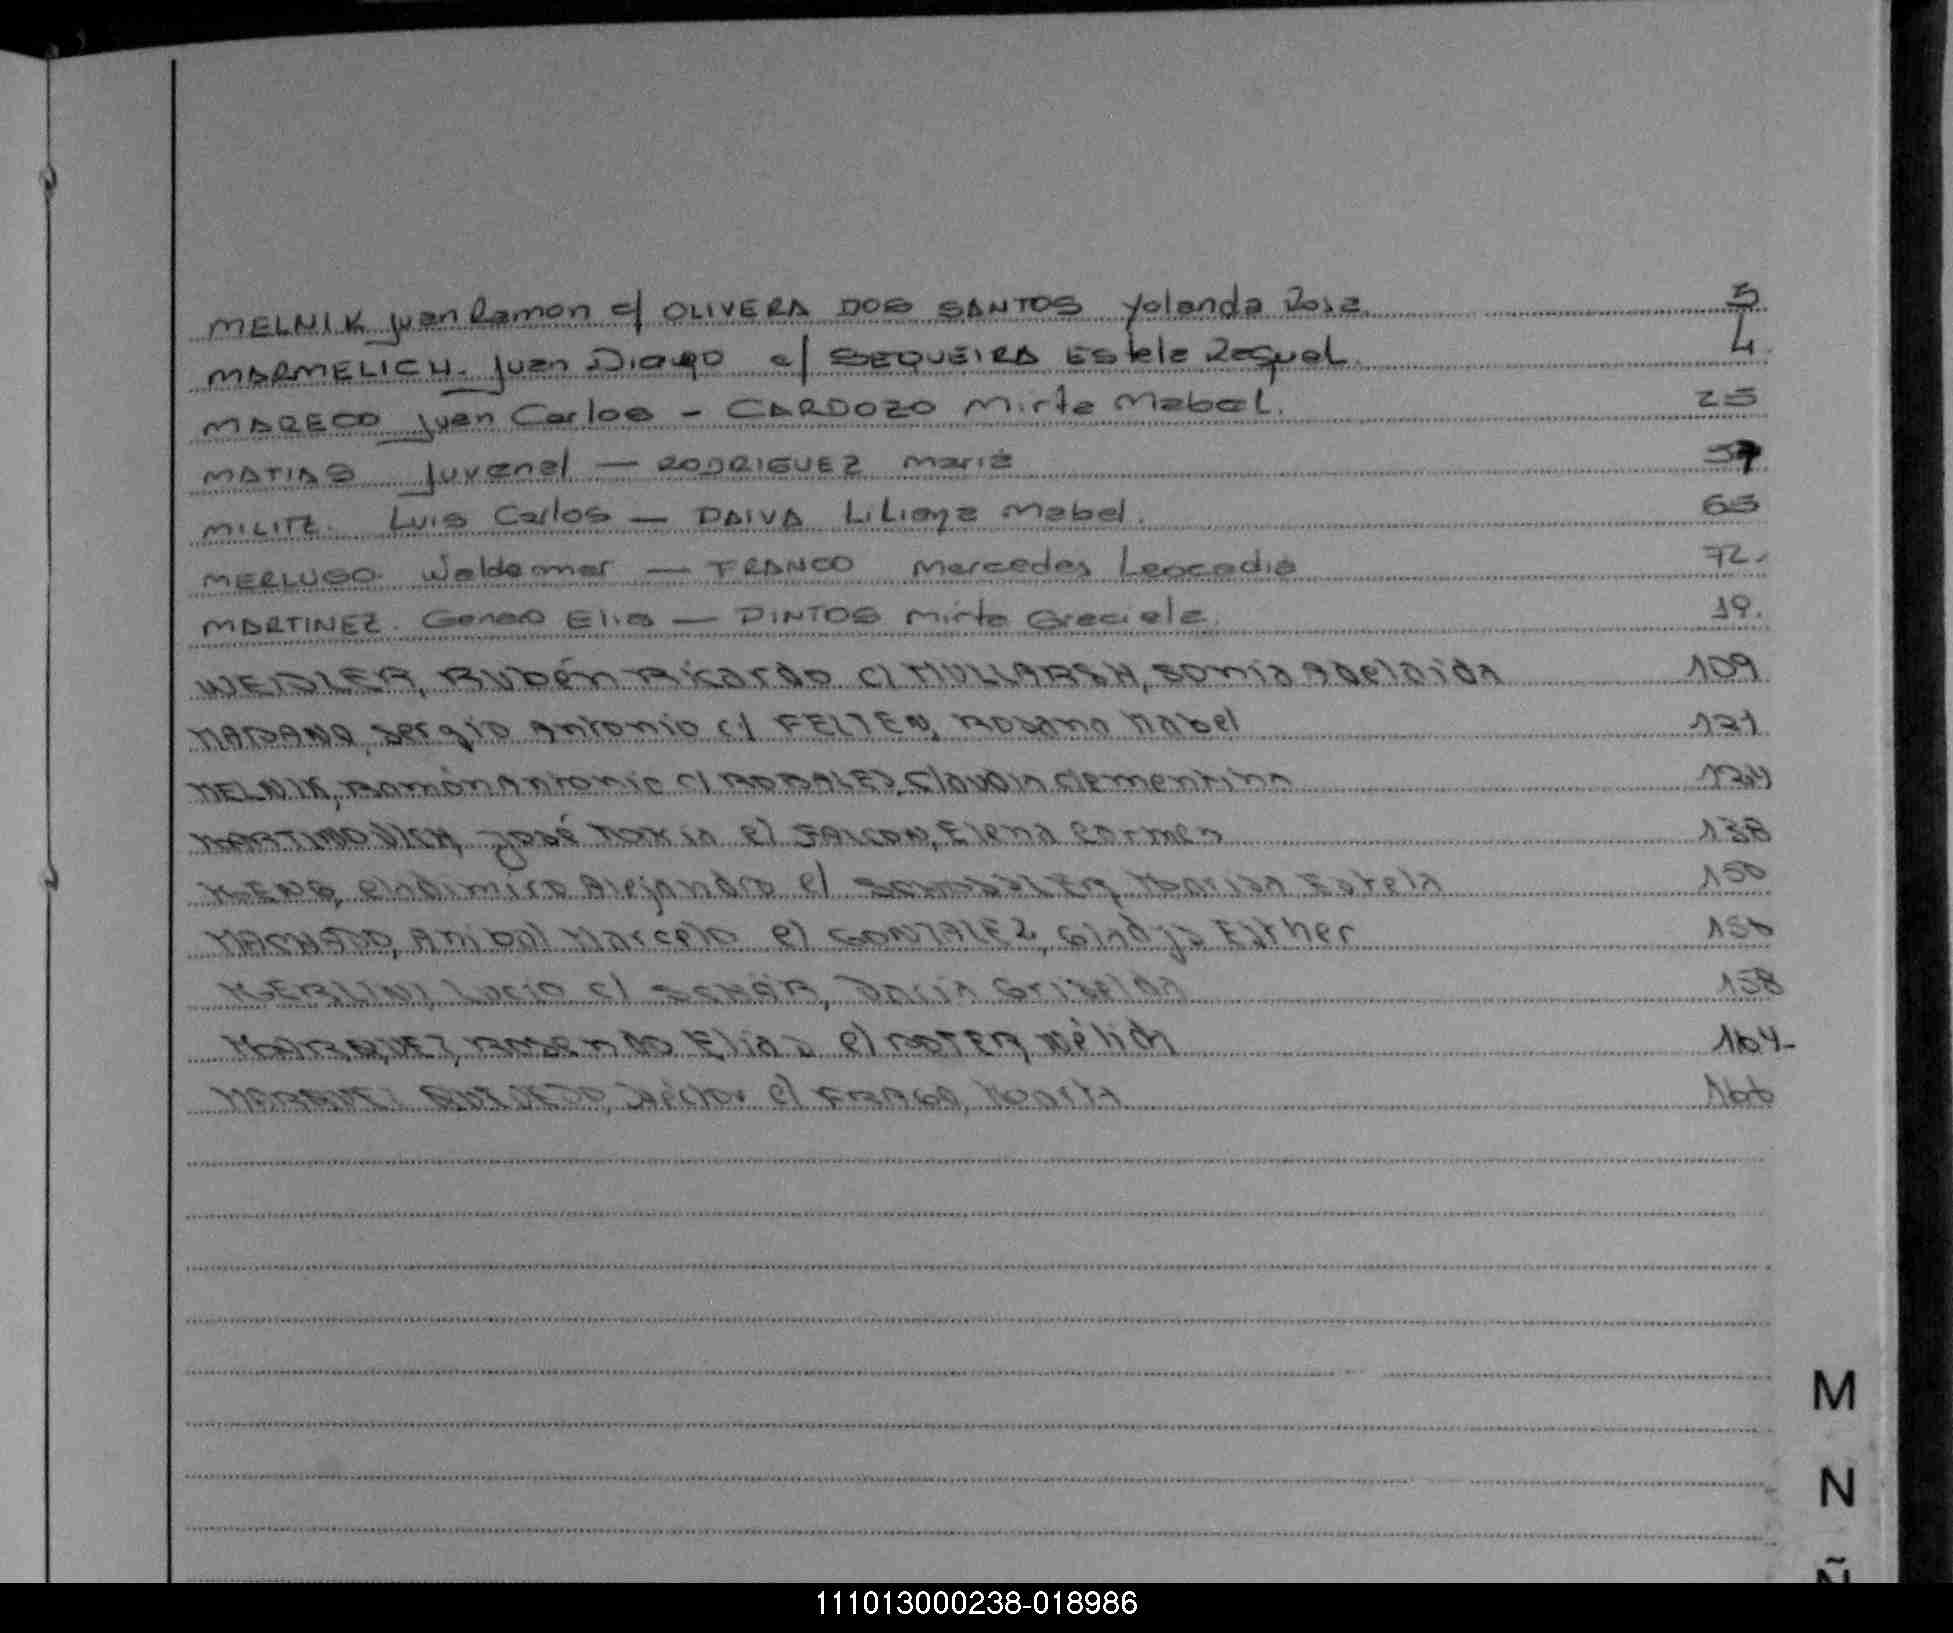 MELNIK Juan Ramon c/ OLIVERA DOS SANTOS Yolanda Rosa 3
MARMELICH. Juan Diego c/ SEQUEIRA Estela Raquel. 4
MARECO Juan Carlos - CARDOZO Mirta Mabel. 25
MATIAS Juvenal — RODRIGUEZ Maria
MILITZ. Luis Carlos — PAIVA Liliana Mabel. 65
MERLUGO. Waldemar — FRANCO Mercedes Leocadia 72.
MARTINEZ. Genaro Elias — PINTOS Mirta Graciela. 19.
WEIDLER, Rubén Ricardo c/ Sonia Adelaida 109
Sergio Antonio c/ FELTEN, Rosana Mabel 121
MELNIK, Ramón Antonio c/ ROSALES, Claudia Clementina 124
MARTINOVICH, José María c/ FALCON, Elena Carmen 138
Alejandro c/ Marisa Estela 150
MACHADO, Anibal Marcelo c/ GONZALEZ, Gladys Esther 156
MERLINI, Lucio c/ SCHÄR, Griselda 158
MARQUEZ, Rosendo Elias c/ Nélida 164-
Héctor c/ FRAGA, Marta 166
M
N
Ñ
111013000238-018986